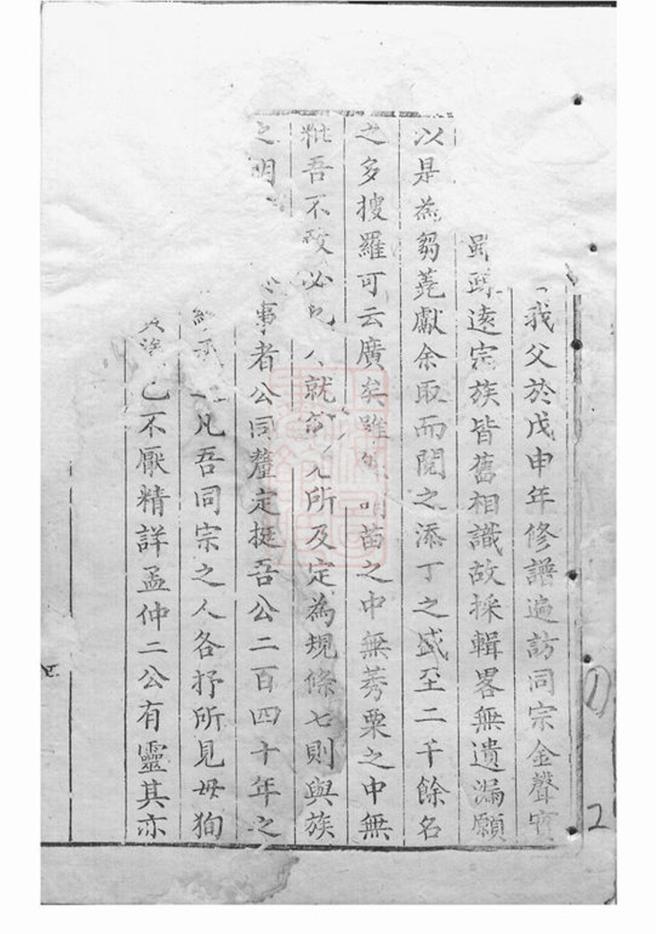 我父於戊申年修譜遍訪同宗金聲實
雖隔遠宗族皆舊相識故採輯畧無遺漏願
以是為芻蕘獻余取而閱之添丁之盛至二千餘名
之多搜羅可云廣矣雖苗之中無莠粟之中無
粃吾不敢必就所及定為規條七則與族
之明事者公同釐定挺吾公二百四十年之
凡吾同宗之人各抒所見毋狥
已不厭精詳孟仲二公有靈其亦
1
2